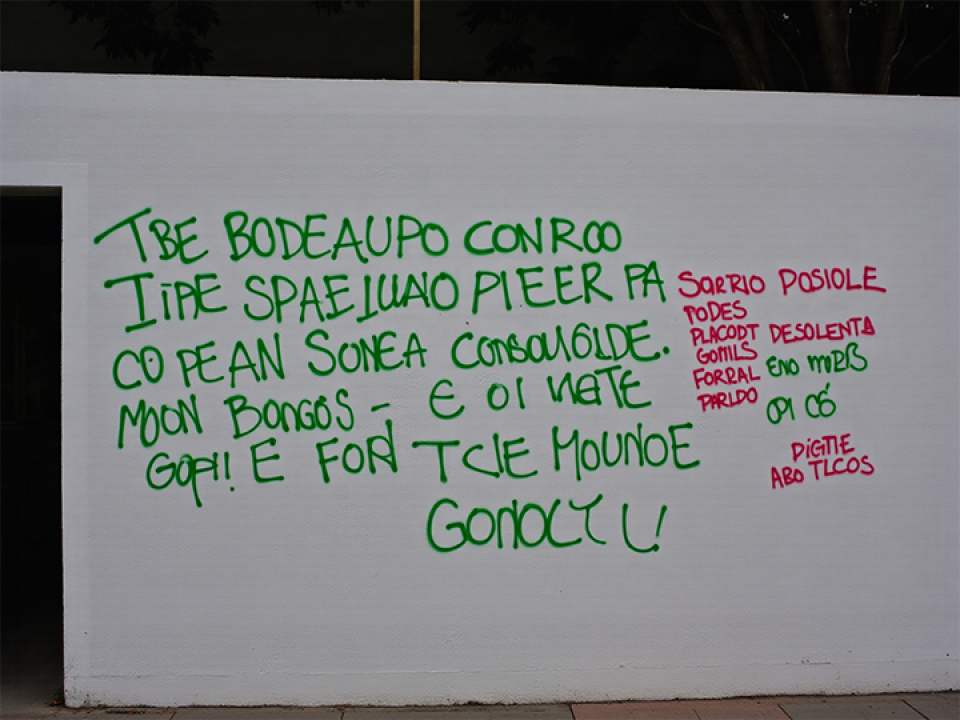 TBE BODEAUPO CONROO
TIPE SPAEIUAO PIEER PA
CO PEAN SONEA CONSOUGIDE.
MOON BONGOS - E OI
GOPI!! E FOR TCIE MOUNOE
GONOCTU!
SORRIO POSIOLE
TODES
PLACODT DESOLENTA
GOMILS ENO
FORRAL
PARLDO OI CÓ
DIGTIE
ABO TLCOS